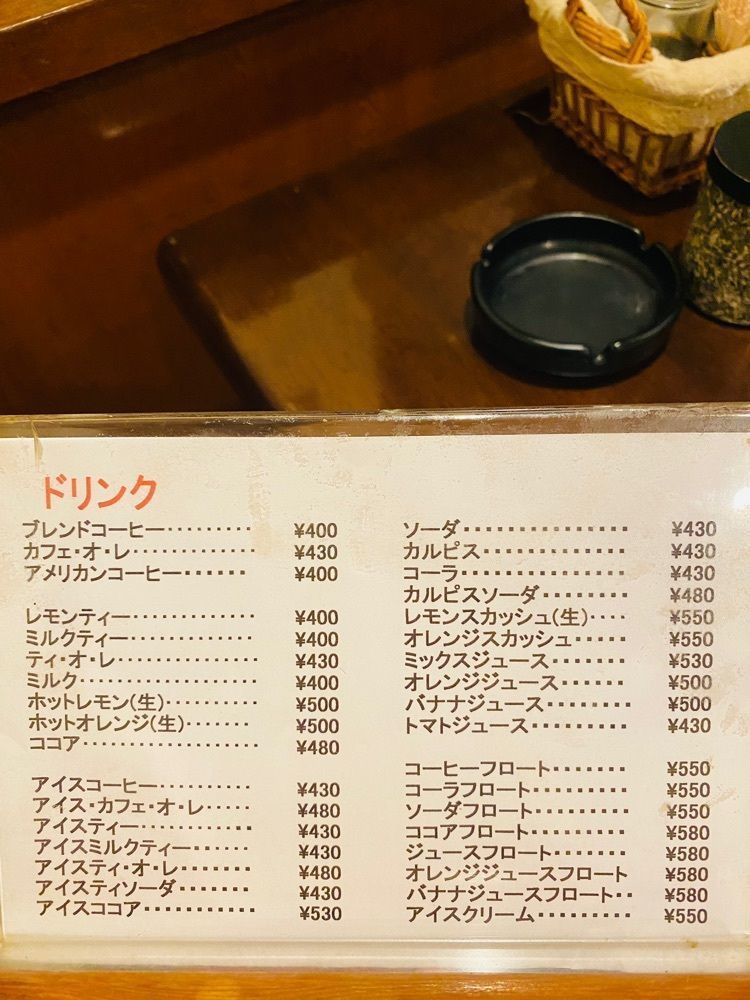 ドリンク
ブレンドコーヒー・・・・・・・・・ ¥400
カフェ・オ・レ・・・・・・・・・・・・・ ¥430
アメリカンコーヒー・・・・・・ ¥400
レモンティー・・・・・・・・・・・・・ ¥400
ミルクティー・・・・・・・・・・・・・ ¥400
ティ・オ・レ・・・・・・・・・・・・・・・ ¥430
ミルク・・・・・・・・・・・・・・・・・・・ ¥400
ホットレモン(生)・・・・・・・・・・ ¥500
ホットオレンジ(生)・・・・・・・ ¥500
ココア・・・・・・・・・・・・・・・・・・・ ¥480
アイスコーヒー・・・・・・・・・・ ¥430
アイス・カフェ・オ・レ・・・・・ ¥480
アイスティー・・・・・・・・・・・・ ¥430
アイスミルクティー・・・・・・ ¥430
アイスティ・オ・レ・・・・・・・・ ¥480
アイスティソーダ・・・・・・・・ ¥430
アイスココア・・・・・・・・・・・・ ¥530
ソーダ・・・・・・・・・・・・・・・・ ¥430
カルピス・・・・・・・・・・・・・・ ¥430
コーラ・・・・・・・・・・・・・・・・ ¥430
カルピスソーダ・・・・・・・・ ¥480
レモンスカッシュ(生)・・・・ ¥550
オレンジスカッシュ・・・・・ ¥550
ミックスジュース・・・・・・・ ¥530
オレンジジュース・・・・・・ ¥500
バナナジュース・・・・・・・・ ¥500
トマトジュース・・・・・・・・・ ¥430
コーヒーフロート・・・・・・・ ¥550
コーラフロート・・・・・・・・・ ¥550
ソーダフロート・・・・・・・・・ ¥550
ココアフロート・・・・・・・・・ ¥580
ジュースフロート・・・・・・・ ¥580
オレンジジュースフロート ¥580
バナナジュースフロート・・ ¥580
アイスクリーム・・・・・・・・・ ¥550